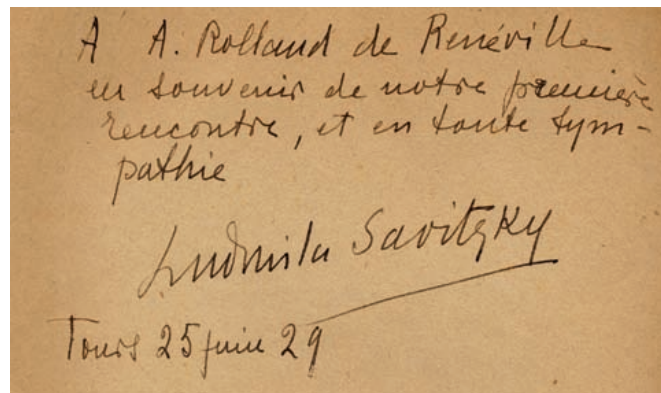 A A. Rolland de Renéville
en souvenir de notre première
rencontre, et en toute sym-
pathie
Ludmila Savitzky
Tours 25 juin 29